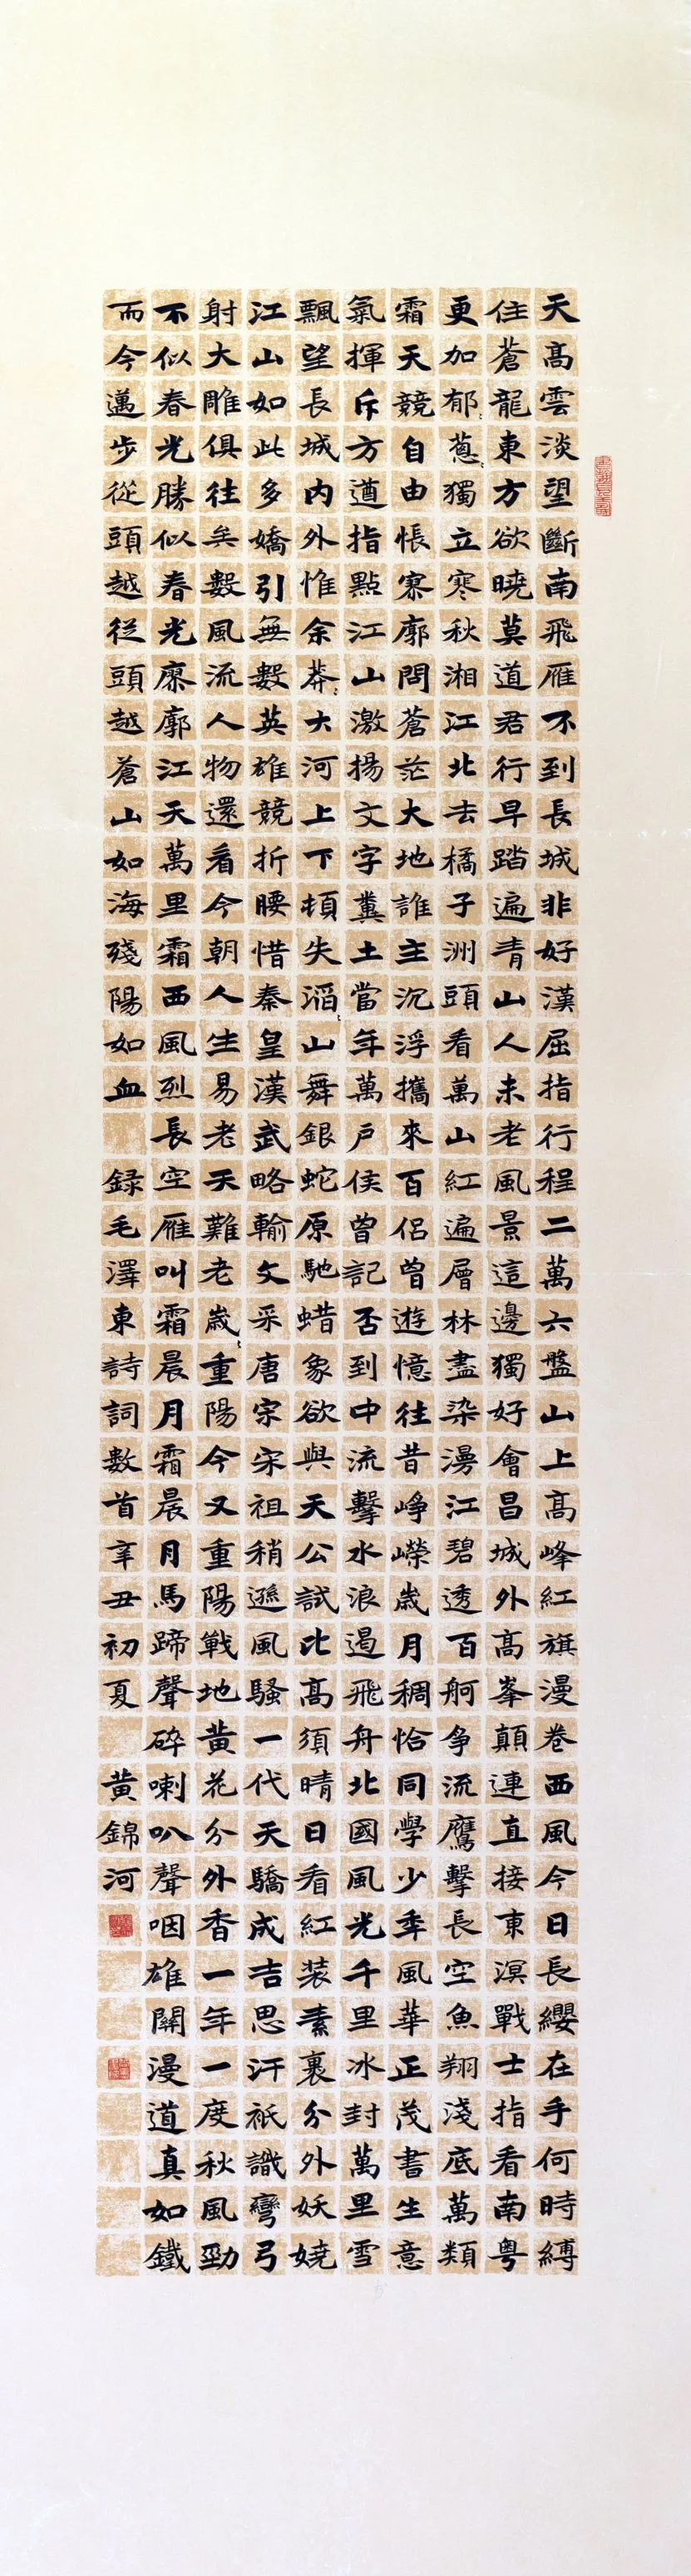 天高雲淡望斷南飛雁不到長城非好漢屈指行程二萬六盤山上高峰紅旗漫卷西風今日長纓在手何時縛
住蒼龍東方欲曉莫道君行早踏遍青山人未老風景這邊獨好會昌城外高峯顛連直接東溟戰士指看南粵
更加郁〻蔥〻獨立寒秋湘江北去橘子洲頭看萬山紅遍層林盡染漫江碧透百舸爭流鷹擊長空魚翔淺底萬類
霜天競自由悵寮廓問蒼茫大地誰主沉浮攜來百侶曾遊憶往昔崢嶸歲月稠恰同學少年風華正茂書生意
氣揮斥方遒指點江山激揚文字糞土當年萬戶侯曾記否到中流擊水浪遏飛舟北國風光千里冰封萬里雪
飄望長城內外惟余莽〻大河上下頓失滔〻山舞銀蛇原馳蜡象欲與天公試比高須晴日看紅裝素裹分外妖嬈
江山如此多嬌引無數英雄競折腰惜秦皇漢武略輸文采唐宗宋祖稍遜風騷一代天驕成吉思汗衹識彎弓
射大雕俱往矣數風流人物還看今朝人生易老天難老歲〻重陽今又重陽戰地黃花分外香一年一度秋風勁
不似春光勝似春光廖廓江天萬里霜西風烈長空雁叫霜晨月霜晨月馬蹄聲碎喇叭聲咽雄關漫道真如鐵
而今邁步從頭越從頭越蒼山如海殘陽如血 録毛澤東詩詞數首辛丑初夏 黃錦河